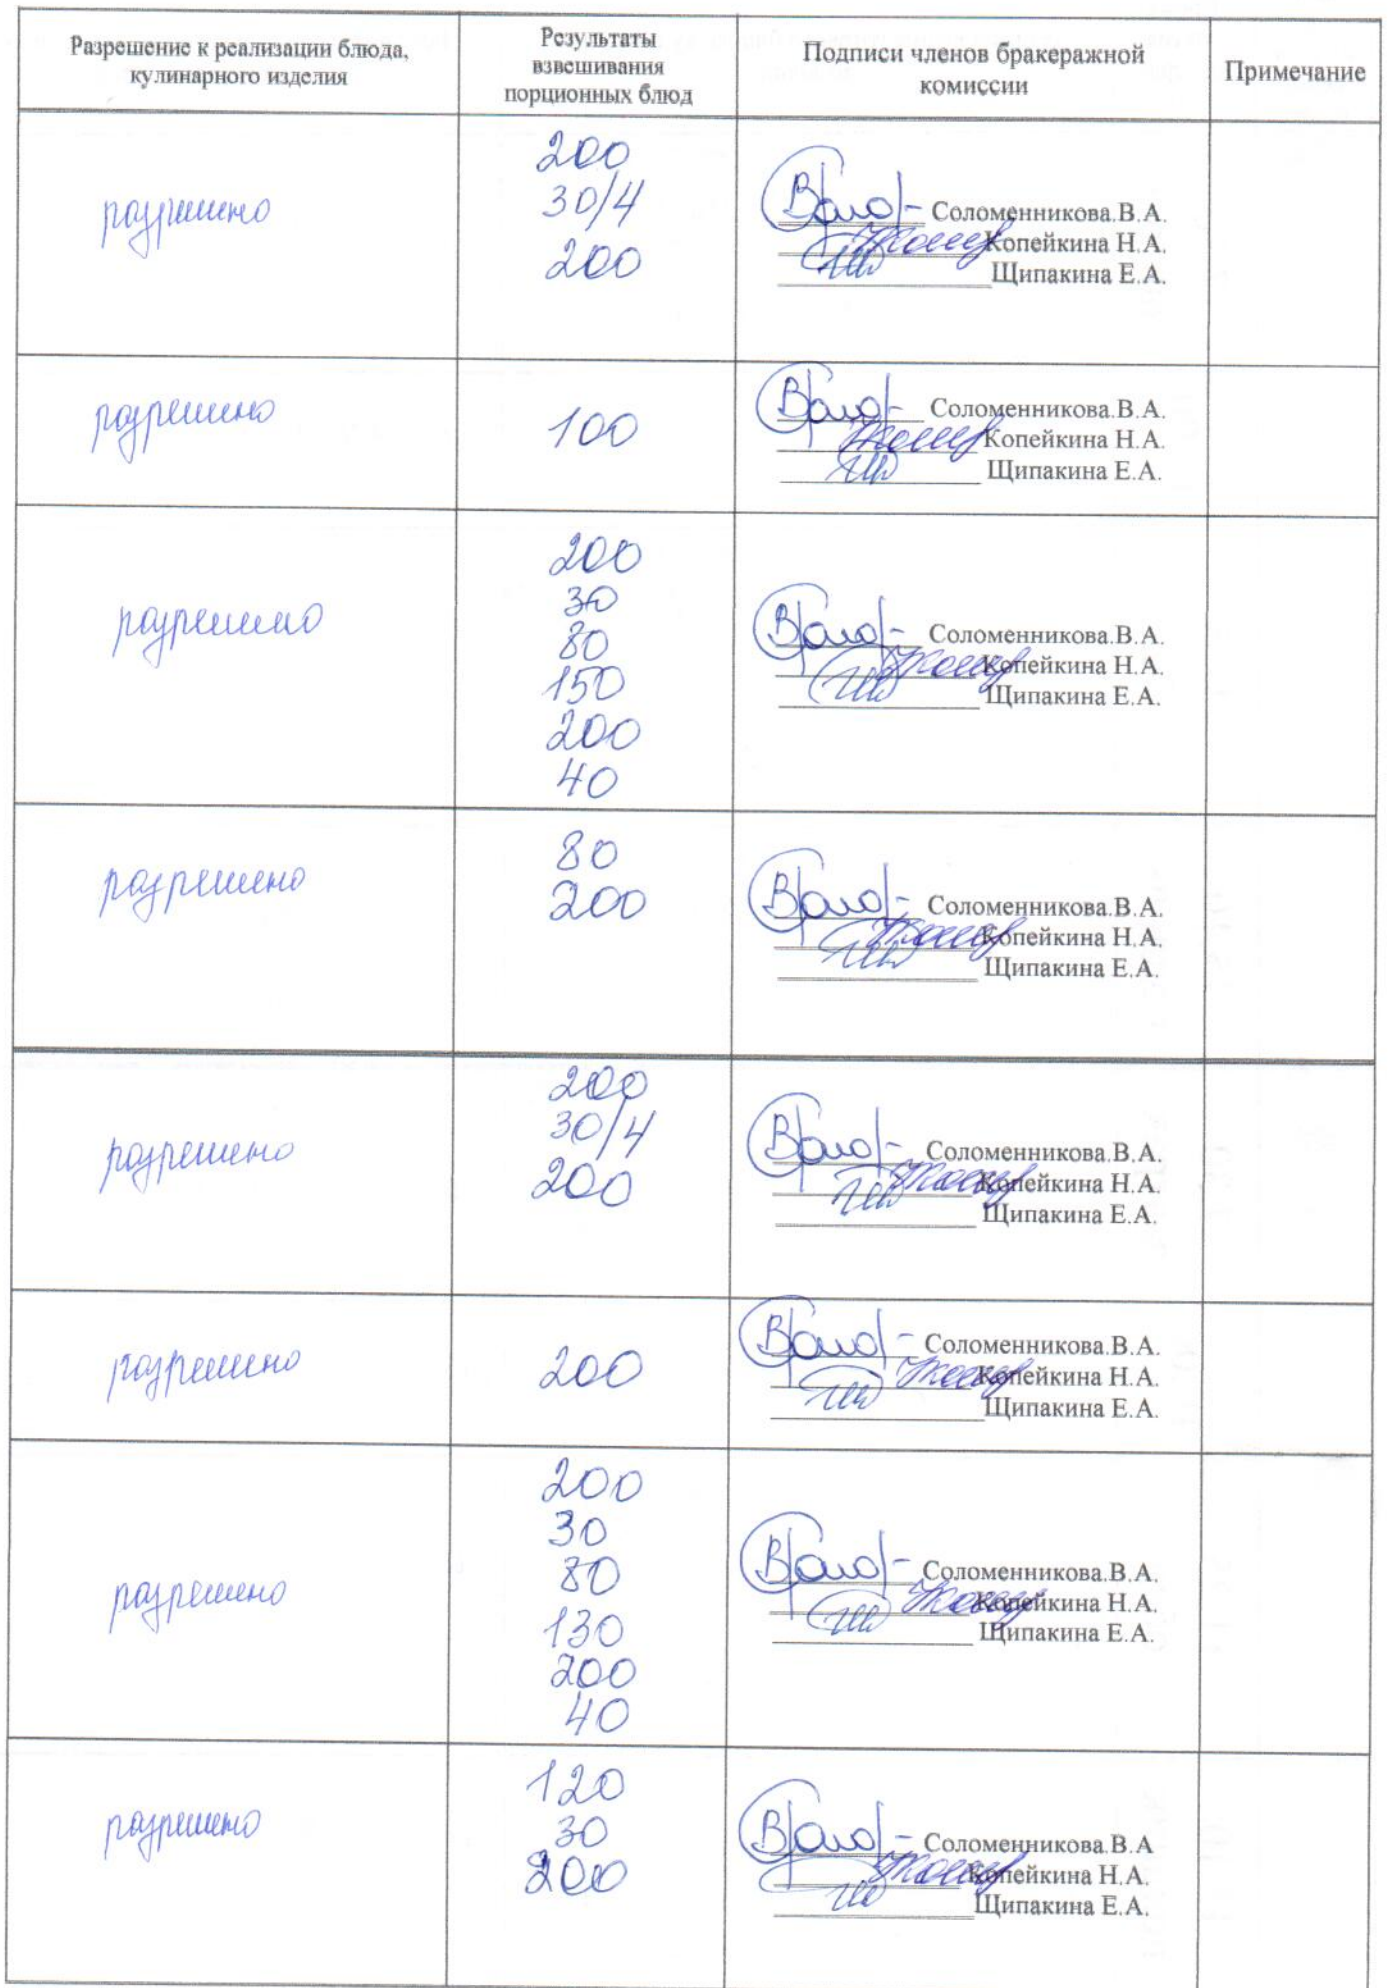 Разрешение к реализации блюда,
кулинарного изделия
Результаты
взвешивания
порционных блюд
Подписи членов бракеражной
комиссии
Примечание
разрешено
200
30/4
200
Соломенникова.В.А.
Копейкина Н.А.
Щипакина Е.А.
разрешено
100
Соломенникова.В.А.
Копейкина Н.А.
Щипакина Е.А.
разрешено
200
30
80
150
200
40
Соломенникова.В.А.
Копейкина Н.А.
Щипакина Е.А.
разрешено
80
200
Соломенникова.В.А.
Копейкина Н.А.
Щипакина Е.А.
разрешено
200
30/4
200
Соломенникова.В.А.
Копейкина Н.А.
Щипакина Е.А.
разрешено
200
Соломенникова.В.А.
Копейкина Н.А.
Щипакина Е.А.
разрешено
200
30
80
130
200
40
Соломенникова.В.А.
Копейкина Н.А.
Щипакина Е.А.
разрешено
120
30
200
Соломенникова.В.А
Копейкина Н.А.
Щипакина Е.А.